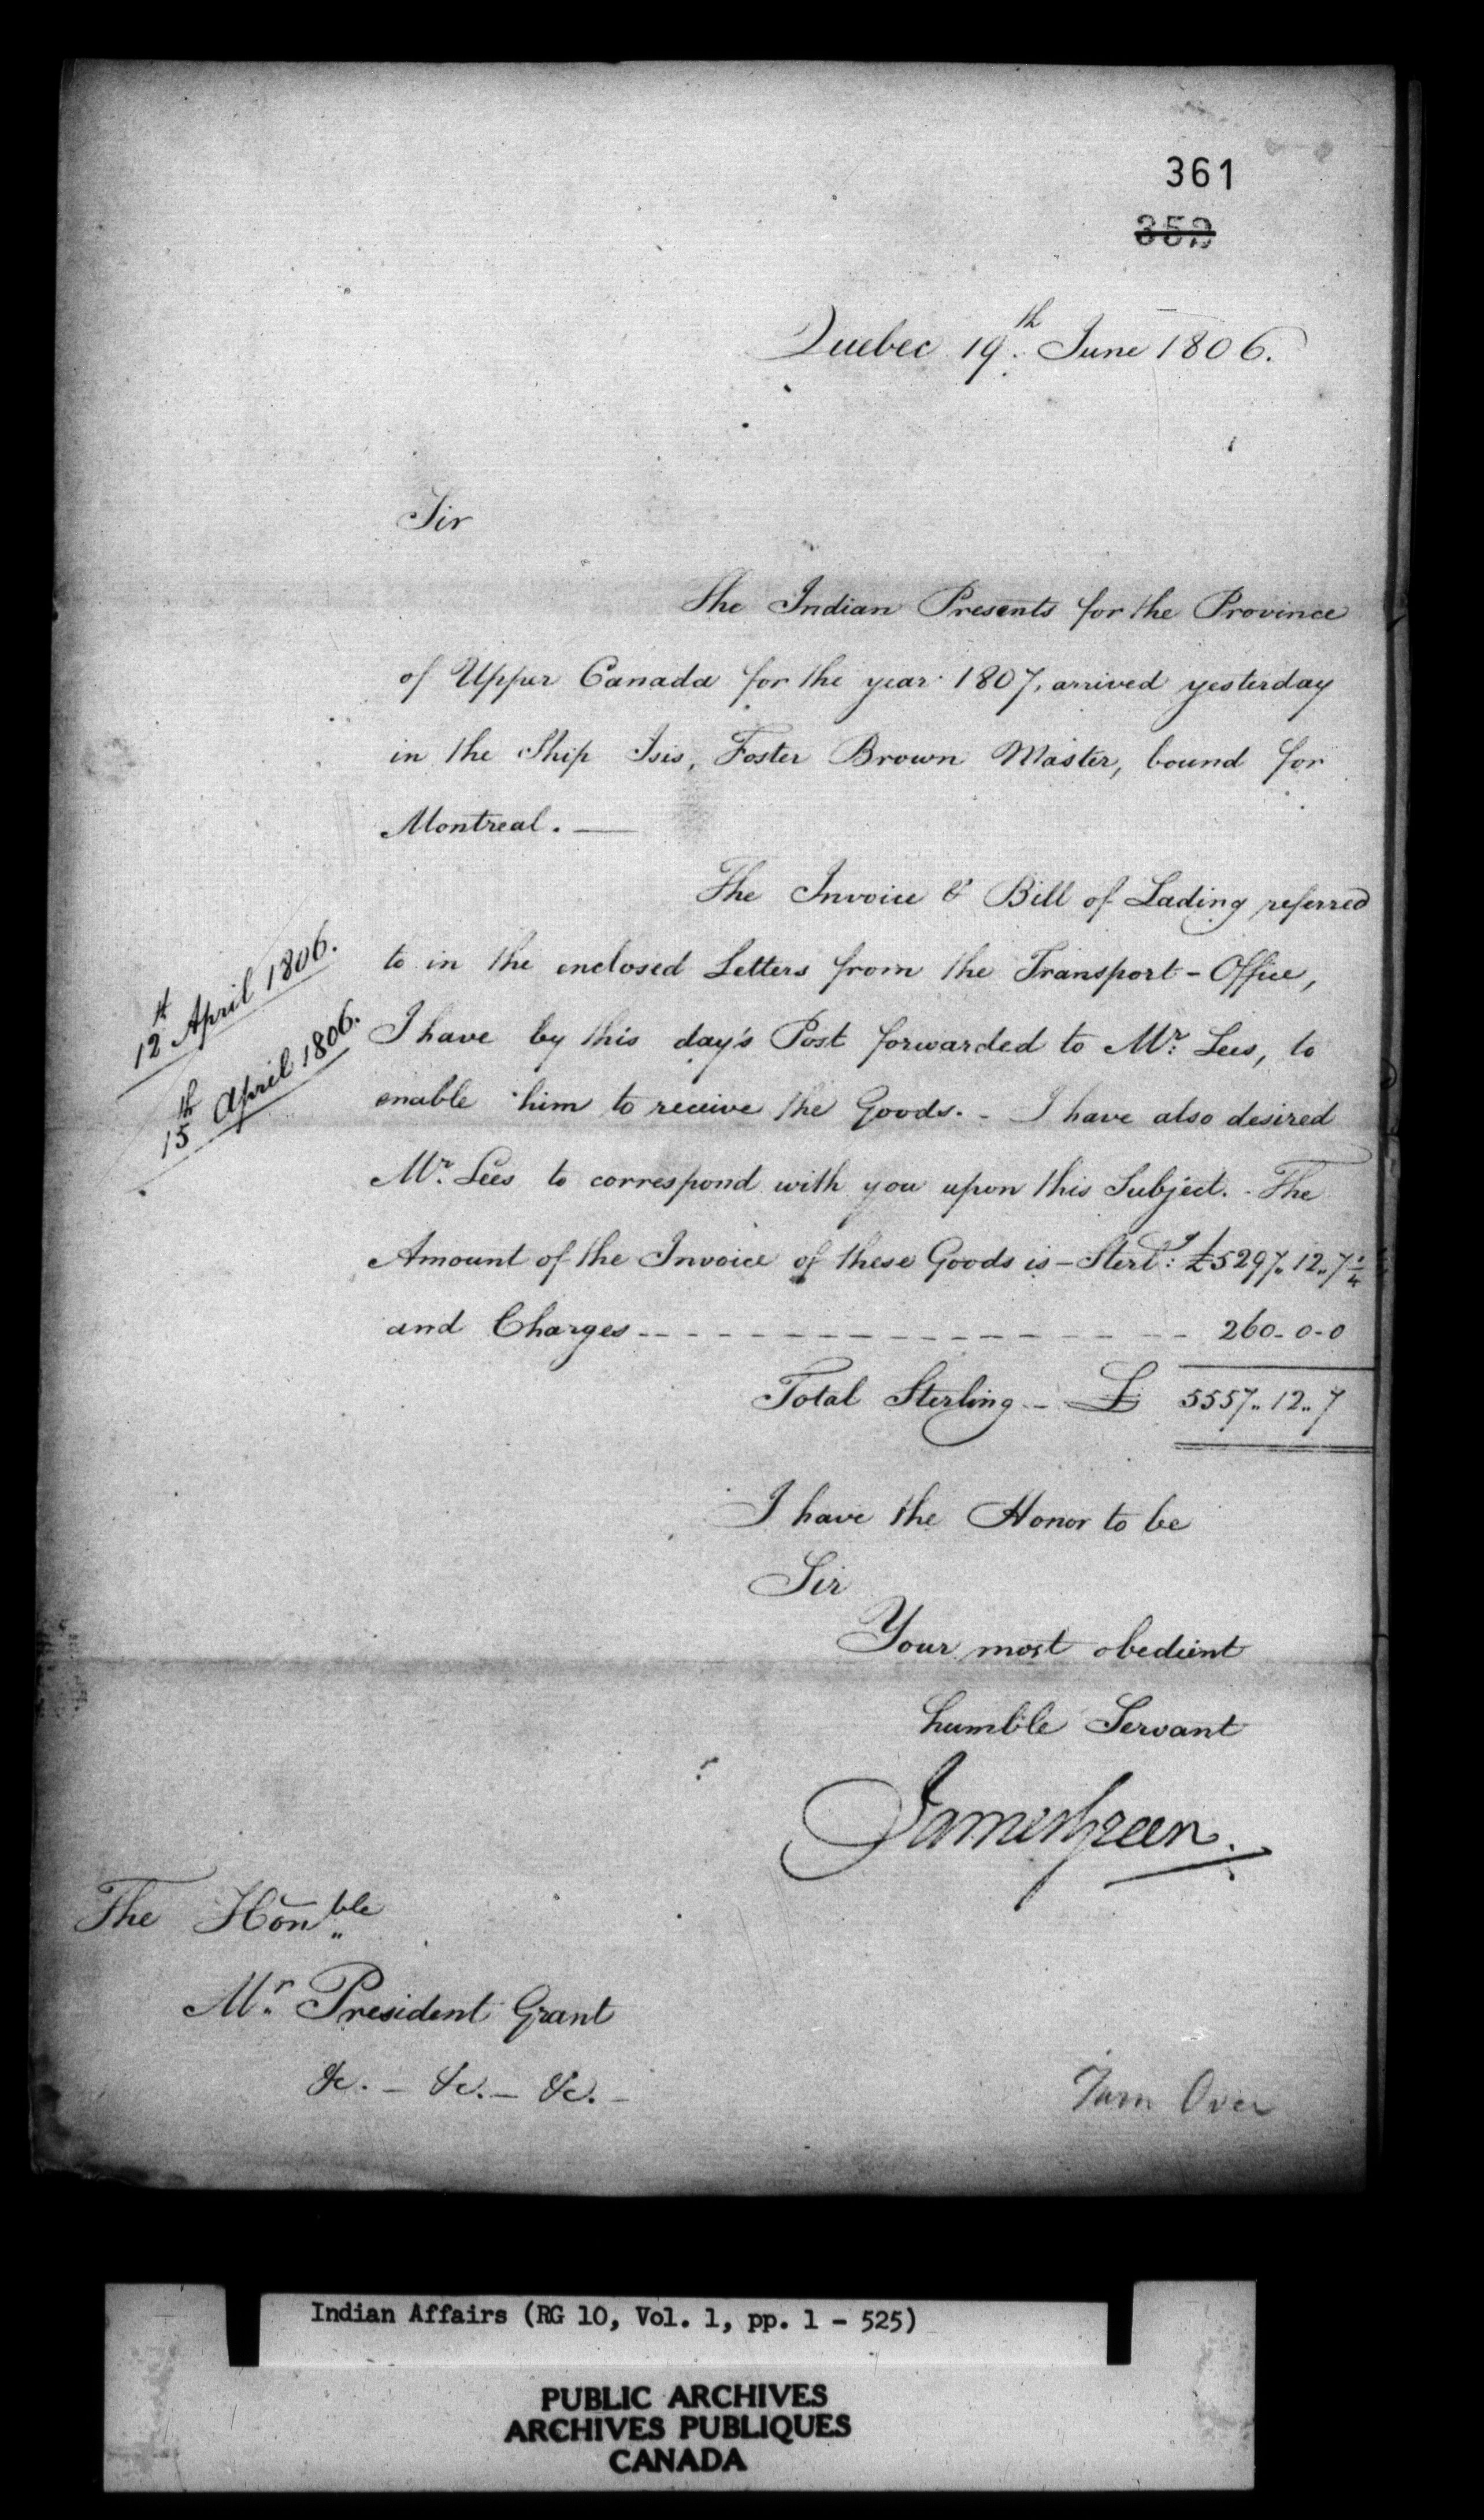 361
352
Quebec 19th June 1806.
Sir
The Indian Presents for the Province
of Upper Canada for the year 1807, arrived yesterday
in the Ship Isis, Foster Brown Master, bound for
Montreal. —
The Invoice & Bill of Lading referred
to in the enclosed Letters from the Transport-Office,
12th April 1806.
15th April 1806.
I have by this day's Post forwarded to Mr. Lees, to
enable him to receive the Goods. - I have also desired
Mr. Lees to correspond with you upon this Subject. - The
Amount of the Invoice of these Goods is - Sterlg: £5297.. 12.. 7 1/4
and Charges - - - - - - - - - - - - - - - - 260 - 0 - 0
Total Sterling - - £ 5557.. 12.. 7
I have the Honor to be
Sir
Your most obedient
humble Servant
James Green.
The Honble
Mr. President Grant
&c. - &c. - &c. -
Turn Over
Indian Affairs (RG 10, Vol. 1, pp. 1 - 525)
PUBLIC ARCHIVES
ARCHIVES PUBLIQUES
CANADA